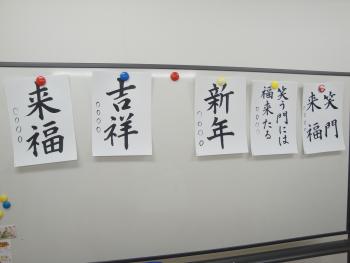 来福
○○○○
吉祥
○○○○
新年
○○○○
笑う門には
福来たる
○○○○
笑門
来福
○○○○